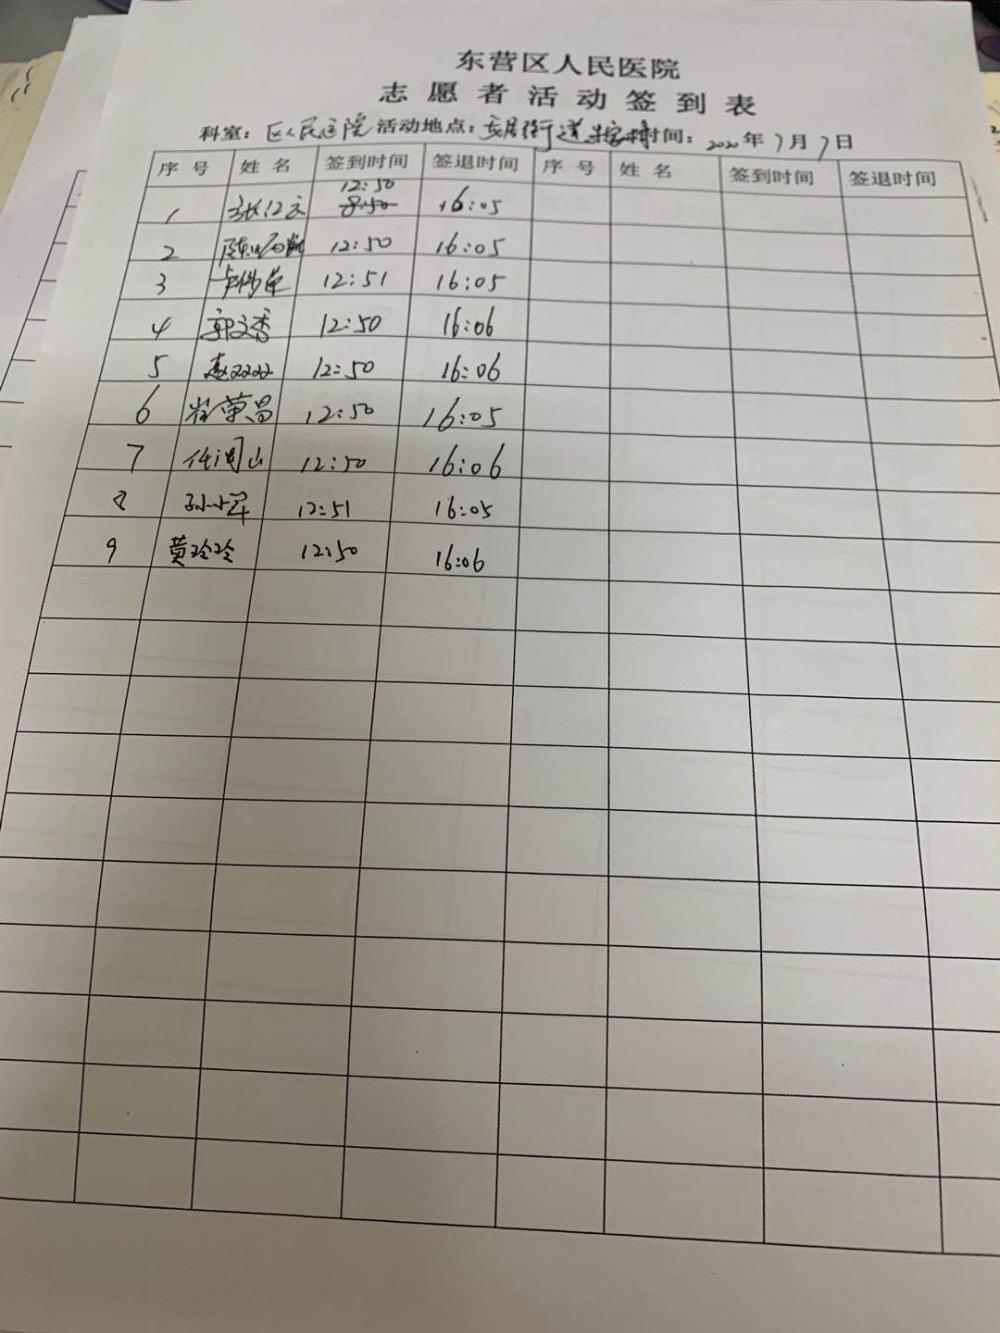 东营区人民医院
志愿者活动签到表
科室：区人民医院 活动地点：街道 时间：2020年7月7日
序号 姓名 签到时间 签退时间 序号 姓名 签到时间 签退时间
12:50
1 8:50 16:05
2 12:50 16:05
3 12:51 16:05
4 郭文香 12:50 16:06
5 赵双双 12:50 16:06
6 崔荣昌 12:50 16:05
7 任洞山 12:50 16:06
8 孙小军 12:51 16:05
9 黄玲玲 12:50 16:06